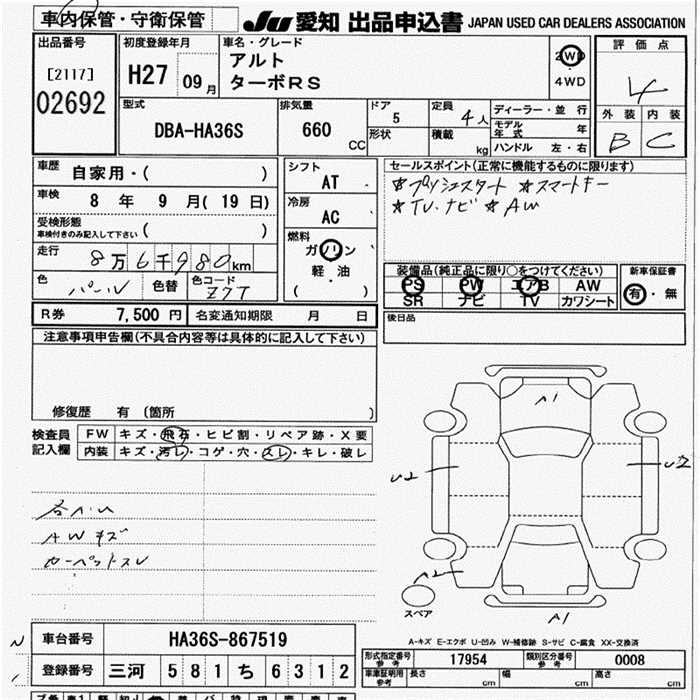 車内保管・守衛保管
JU 愛知 出品申込書 JAPAN USED CAR DEALERS ASSOCIATION
出品番号
[2117]
02692
初度登録年月
H27 09月
車名・グレード
アルト
ターボRS
2WD
4WD
評価点
4
外装 内装
B C
型式
DBA-HA36S
排気量
660 CC
ドア
5
形状
定員
4人
積載 kg
ディーラー・並行
モデル年式 年
ハンドル 左・右
車歴
自家用・( )
車検
8年 9月(19日)
受検形態
車検付きのみ記入して下さい ( )
走行
8万6千980km
色
パール
色替
色コード
Z7T
シフト
AT
冷房
AC
燃料
ガソリン
軽・油
( )
セールスポイント(正常に機能するものに限ります)
☆プッシュスタート ☆スマートキー
☆TV.ナビ ☆AW
装備品(純正品に限り○をつけてください)
PS PW エアB AW
SR ナビ TV カワシート
新車保証書
有・無
R券 7,500円
名変通知期限 月 日
後日品
注意事項申告欄(不具合内容等は具体的に記入して下さい)
修復歴 有(箇所 )
検査員
記入欄
FW キズ・飛石・ヒビ割・リペア跡・X要
内装 キズ・汚レ・コゲ・穴・スレ・キレ・破レ
AWキズ
カーペットスレ
A1
U2
U2
A2
A1
スペア
A-キズ E-エクボ U-凹み W-補修跡 S-サビ C-腐食 XX-交換済
車台番号
HA36S-867519
登録番号
三河 581 ち 6312
型式指定番号
参考
17954
類別区分番号
参考
0008
車庫証明用
参考
長さ cm
幅 cm
高さ cm